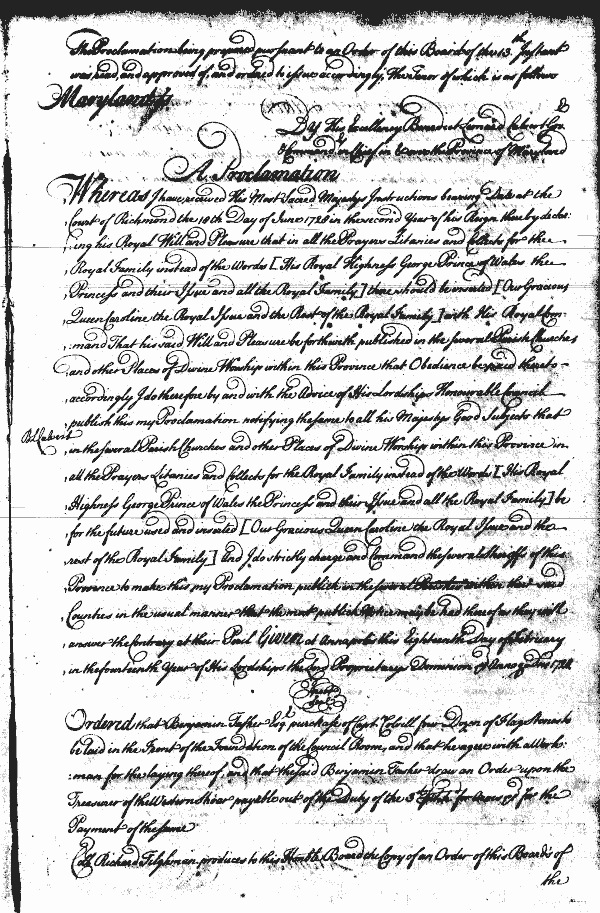 The Proclamation being prepared pursuant to an Order of this Board of the 13th Instant
was read and approved of, and ordered to issue accordingly, The Tenor of which is as follows
Maryland ss
By His Excellency Benedict Leonard Calvert Gov.r
& Commander in Chief in & over the Province of Maryland
A Proclamation
Whereas I have received His Most Sacred Majestys Instructions bearing Date at the
Court of Richmond the 18th Day of June 1728 in the second Year of his Reign thereby decla:
:ing his Royal Will and Pleasure that in all the Prayers Litanies and Collects for the
Royal Family instead of the Words [His Royal Highness George Prince of Wales the
Princess and their Issue and all the Royal Family] there should be inserted [Our Gracious
Queen Caroline the Royal Issue and the Rest of the Royal Family] with His Royal Com:
:mand That his said Will and Pleasure be forthwith published in the several Parish Churches
and other Places of Divine Worship within this Province that Obedience be paid thereto
accordingly I do therefore by and with the Advice of His Lordships Honourable Council
publish this my Proclamation notifying the same to all his Majestys Good Subjects that
Bel Calvert
in the several Parish Churches and other Places of Divine Worship within this Province in
all the Prayers Litanies and Collects for the Royal Family instead of the Words [His Royal
Highness George Prince of Wales the Princess and their Issue and all the Royal Family] be
for the future used and inserted [Our Gracious Queen Caroline the Royal Issue and the
rest of the Royal Family] And I do strictly charge and Command the several Sheriffs of this
Province to make this my Proclamation publick in the several within their said
Counties in the usual manner that the most publick Notice may be had thereof as they will
answer the Contrary at their Peril Given at Annapolis this Eighteenth Day of February
in the fourteenth Year of His Lordships the Lord Proprietarys Dominion &c Anno Dni 1728
Ordered that Benjamin Tasker Esq.r purchase of Capt. Colvill four Dozen of Flag Stones to
be laid in the Front of the Foundation of the Council Room, and that he agree with a Work:
:man for the laying thereof, and that the said Benjamin Tasker draw an Order upon the
Treasurer of the Western Shoar payable out of the Duty of the 3 for Arms &c for the
Payment of the same
Richard Tilghman produces to this Hon.ble Board the Copy of an Order of this Board's of
the